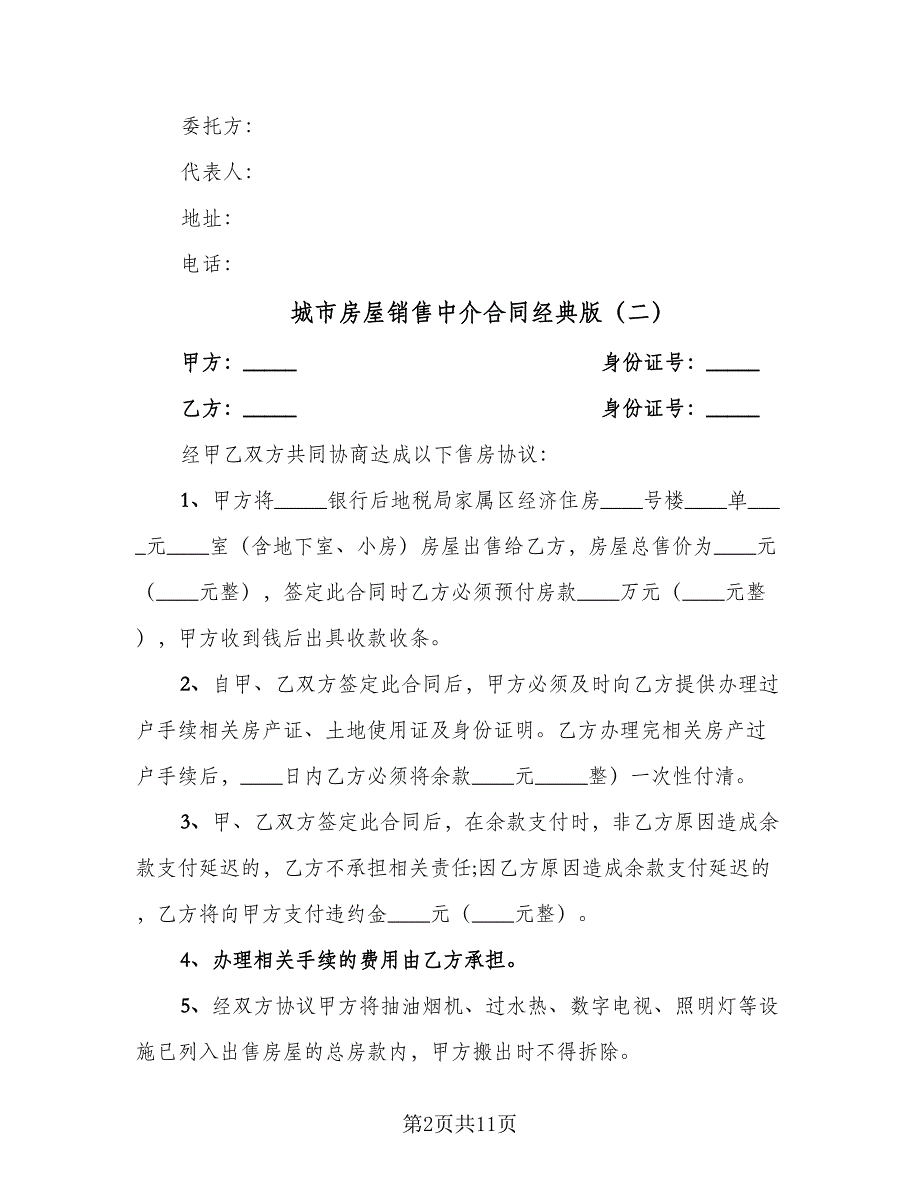 委托方：
代表人：
地址：
电话：
城市房屋销售中介合同经典版（二）
甲方：_____ 身份证号：_____
乙方：_____ 身份证号：_____
经甲乙双方共同协商达成以下售房协议：
1、甲方将_____银行后地税局家属区经济住房____号楼____单___
_元____室（含地下室、小房）房屋出售给乙方，房屋总售价为____元
（____元整），签定此合同时乙方必须预付房款____万元（____元整
），甲方收到钱后出具收款收条。
2、自甲、乙双方签定此合同后，甲方必须及时向乙方提供办理过
户手续相关房产证、土地使用证及身份证明。乙方办理完相关房产过
户手续后，____日内乙方必须将余款____元_____整）一次性付清。
3、甲、乙双方签定此合同后，在余款支付时，非乙方原因造成余
款支付延迟的，乙方不承担相关责任;因乙方原因造成余款支付延迟的
，乙方将向甲方支付违约金____元（____元整）。
4、办理相关手续的费用由乙方承担。
5、经双方协议甲方将抽油烟机、过水热、数字电视、照明灯等设
施已列入出售房屋的总房款内，甲方搬出时不得拆除。
第2页共11页